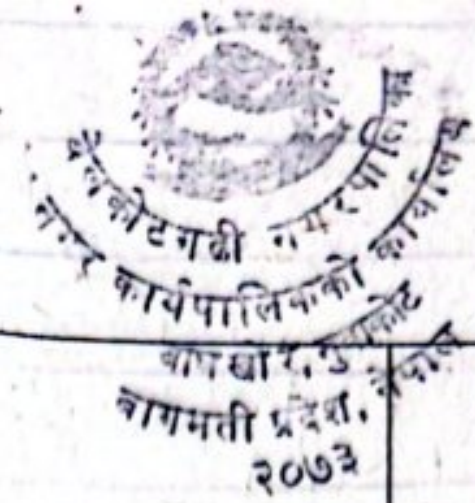 बेलकोटगढी नगरपालिका
नगर कार्यपालिकाको कार्यालय
नुवाकोट
बागमती प्रदेश, नेपाल
२०७३